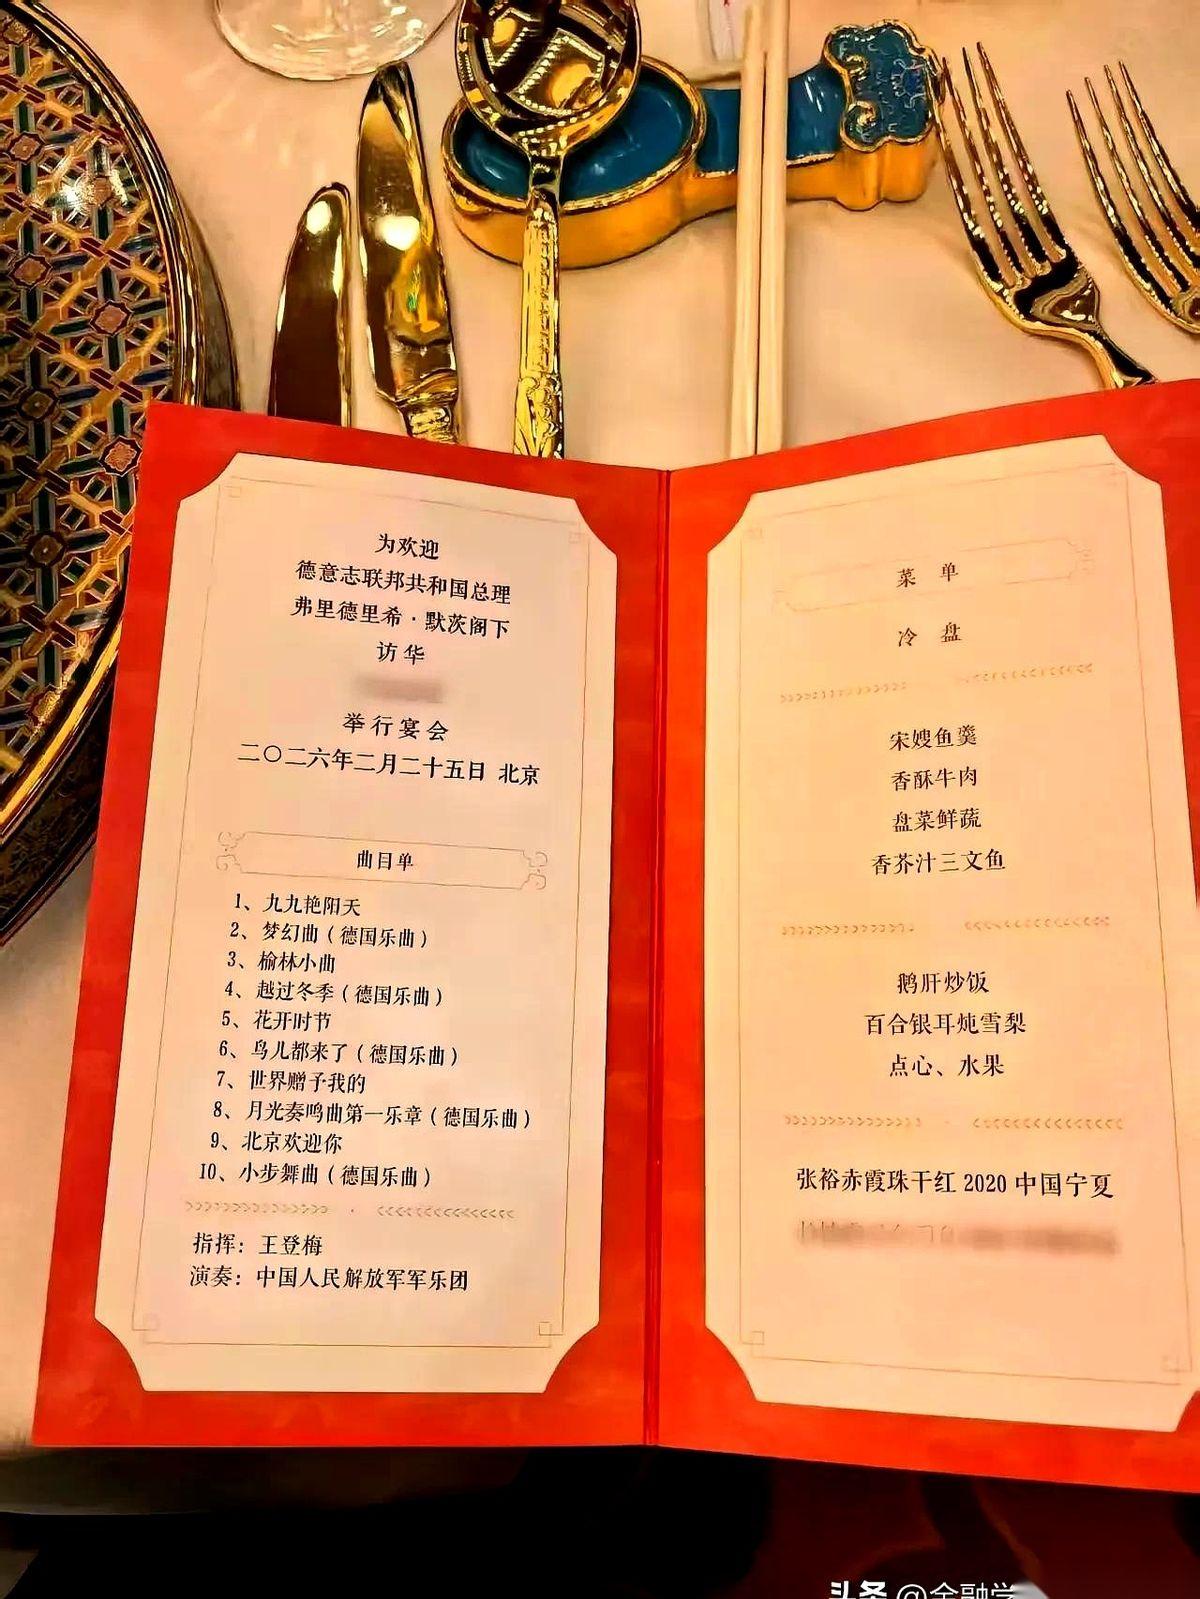 为欢迎
德意志联邦共和国总理
弗里德里希·默茨阁下
访华
举行宴会
二〇二六年二月二十五日 北京
曲目单
1、九九艳阳天
2、梦幻曲（德国乐曲）
3、榆林小曲
4、越过冬季（德国乐曲）
5、花开时节
6、鸟儿都来了（德国乐曲）
7、世界赠予我的
8、月光奏鸣曲第一乐章（德国乐曲）
9、北京欢迎你
10、小步舞曲（德国乐曲）
指挥：王登梅
演奏：中国人民解放军军乐团
菜 单
冷 盘
宋嫂鱼羹
香酥牛肉
盘菜鲜蔬
香芥汁三文鱼
鹅肝炒饭
百合银耳炖雪梨
点心、水果
张裕赤霞珠干红 2020 中国宁夏
头条 @金融学